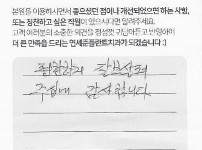 본원을 이용하시면서 좋으셨던 점이나 개선되었으면 하는 사항,
또는 칭찬하고 싶은 직원이 있으시다면 알려주세요.
고객 여러분의 소중한 의견을 경청할 귀담아듣고 반영하여
더 큰 만족을 드리는 연세온플란트치과가 되겠습니다 :)
잘
주셔서 감사합니다.